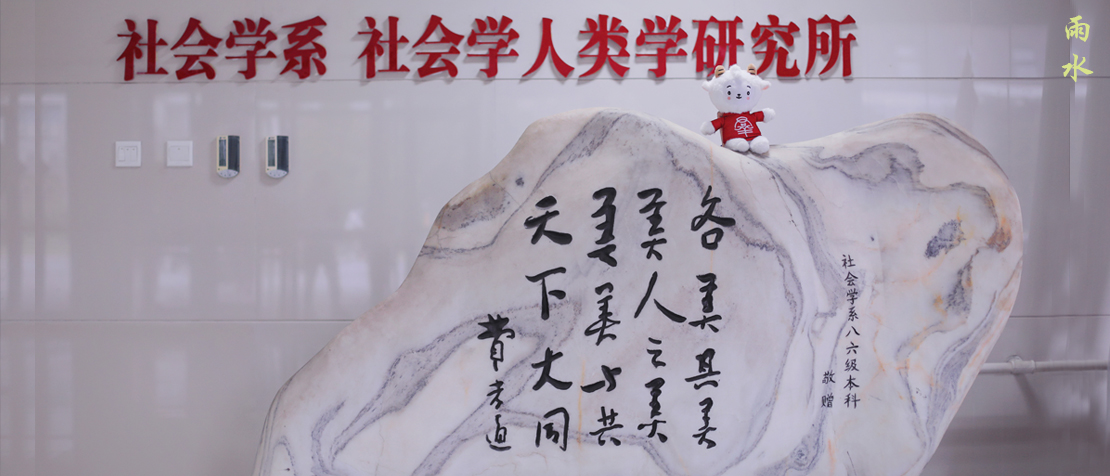 社会学系 社会学人类学研究所
雨水
各美其美
美人之美
美美与共
天下大同
费孝通
社会学系八六级本科
敬赠